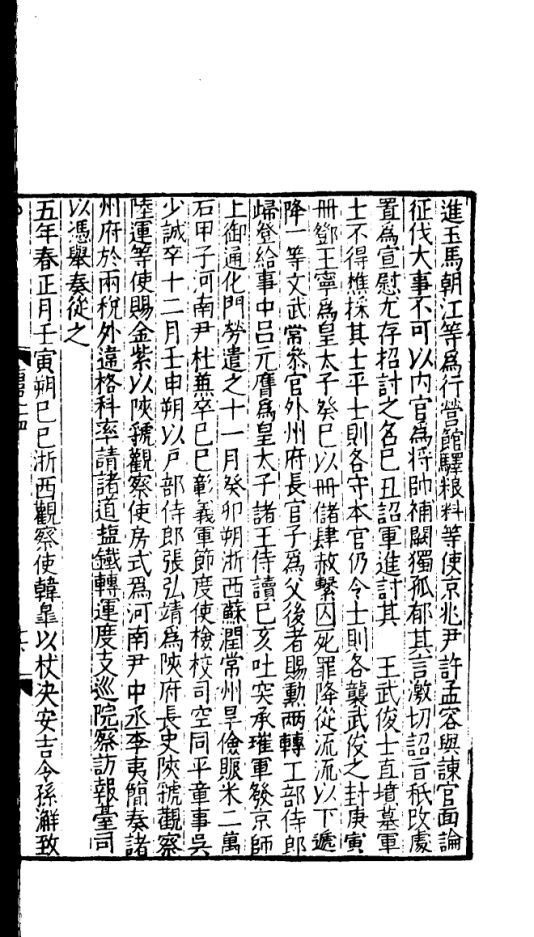 進玉馬朝江等爲行營館驛粮料等使京兆尹許孟容與諫官面論
征伐大事不可以内官爲將帥補闕獨孤郁其言激切詔旨秖改處
置爲宣慰尤存招討之名巳丑詔軍進討其 王武俊士真墳墓軍
士不得樵採其士平士則各守本官仍令士則各襲武俊之封庚寅
册鄧王寧爲皇太子癸巳以册儲肆赦繫囚死罪降從流流以下遞
降一等文武常叅官外州府長官子爲父後者賜勳兩轉工部侍郎
歸登給事中吕元膺爲皇太子諸王侍讀巳亥吐突承璀軍發京師
上御通化門勞遣之十一月癸卯朔浙西蘇潤常州旱儉賑米二萬
石甲子河南尹杜兼卒巳巳彰義軍節度使檢校司空同平章事吳
少誠卒十二月壬申朔以户部侍郎張弘靖爲陝府長史陝虢觀察
陸運等使賜金紫以陝虢觀察使房式爲河南尹中丞李夷簡奏諸
州府於兩稅外違格科率請諸道塩鐵轉運度支巡院察訪報臺司
以憑舉奏從之
五年春正月壬寅朔巳巳浙西觀察使韓皐以杖决安吉令孫澥致